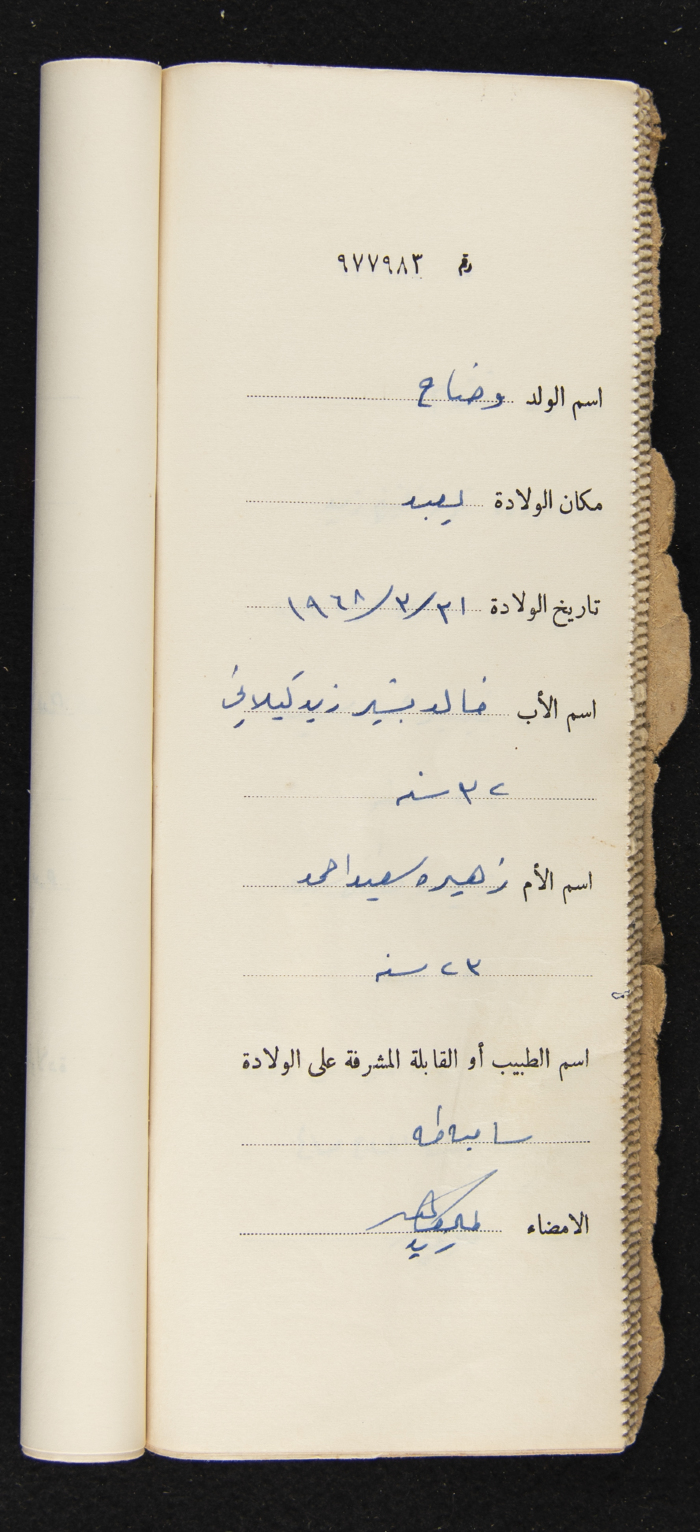 رقم ٩٧٧٩٨٣
اسم الولد وضاح
مكان الولادة يعبد
تاريخ الولادة ٣١/٣/١٩٦٨
اسم الأب خالد بشير زيد كيلاني
٣٢ سنه
اسم الأم زهيره سعيد احمد
٢٣ سنه
اسم الطبيب أو القابلة المشرفة على الولادة
ساميه طه
الامضاء